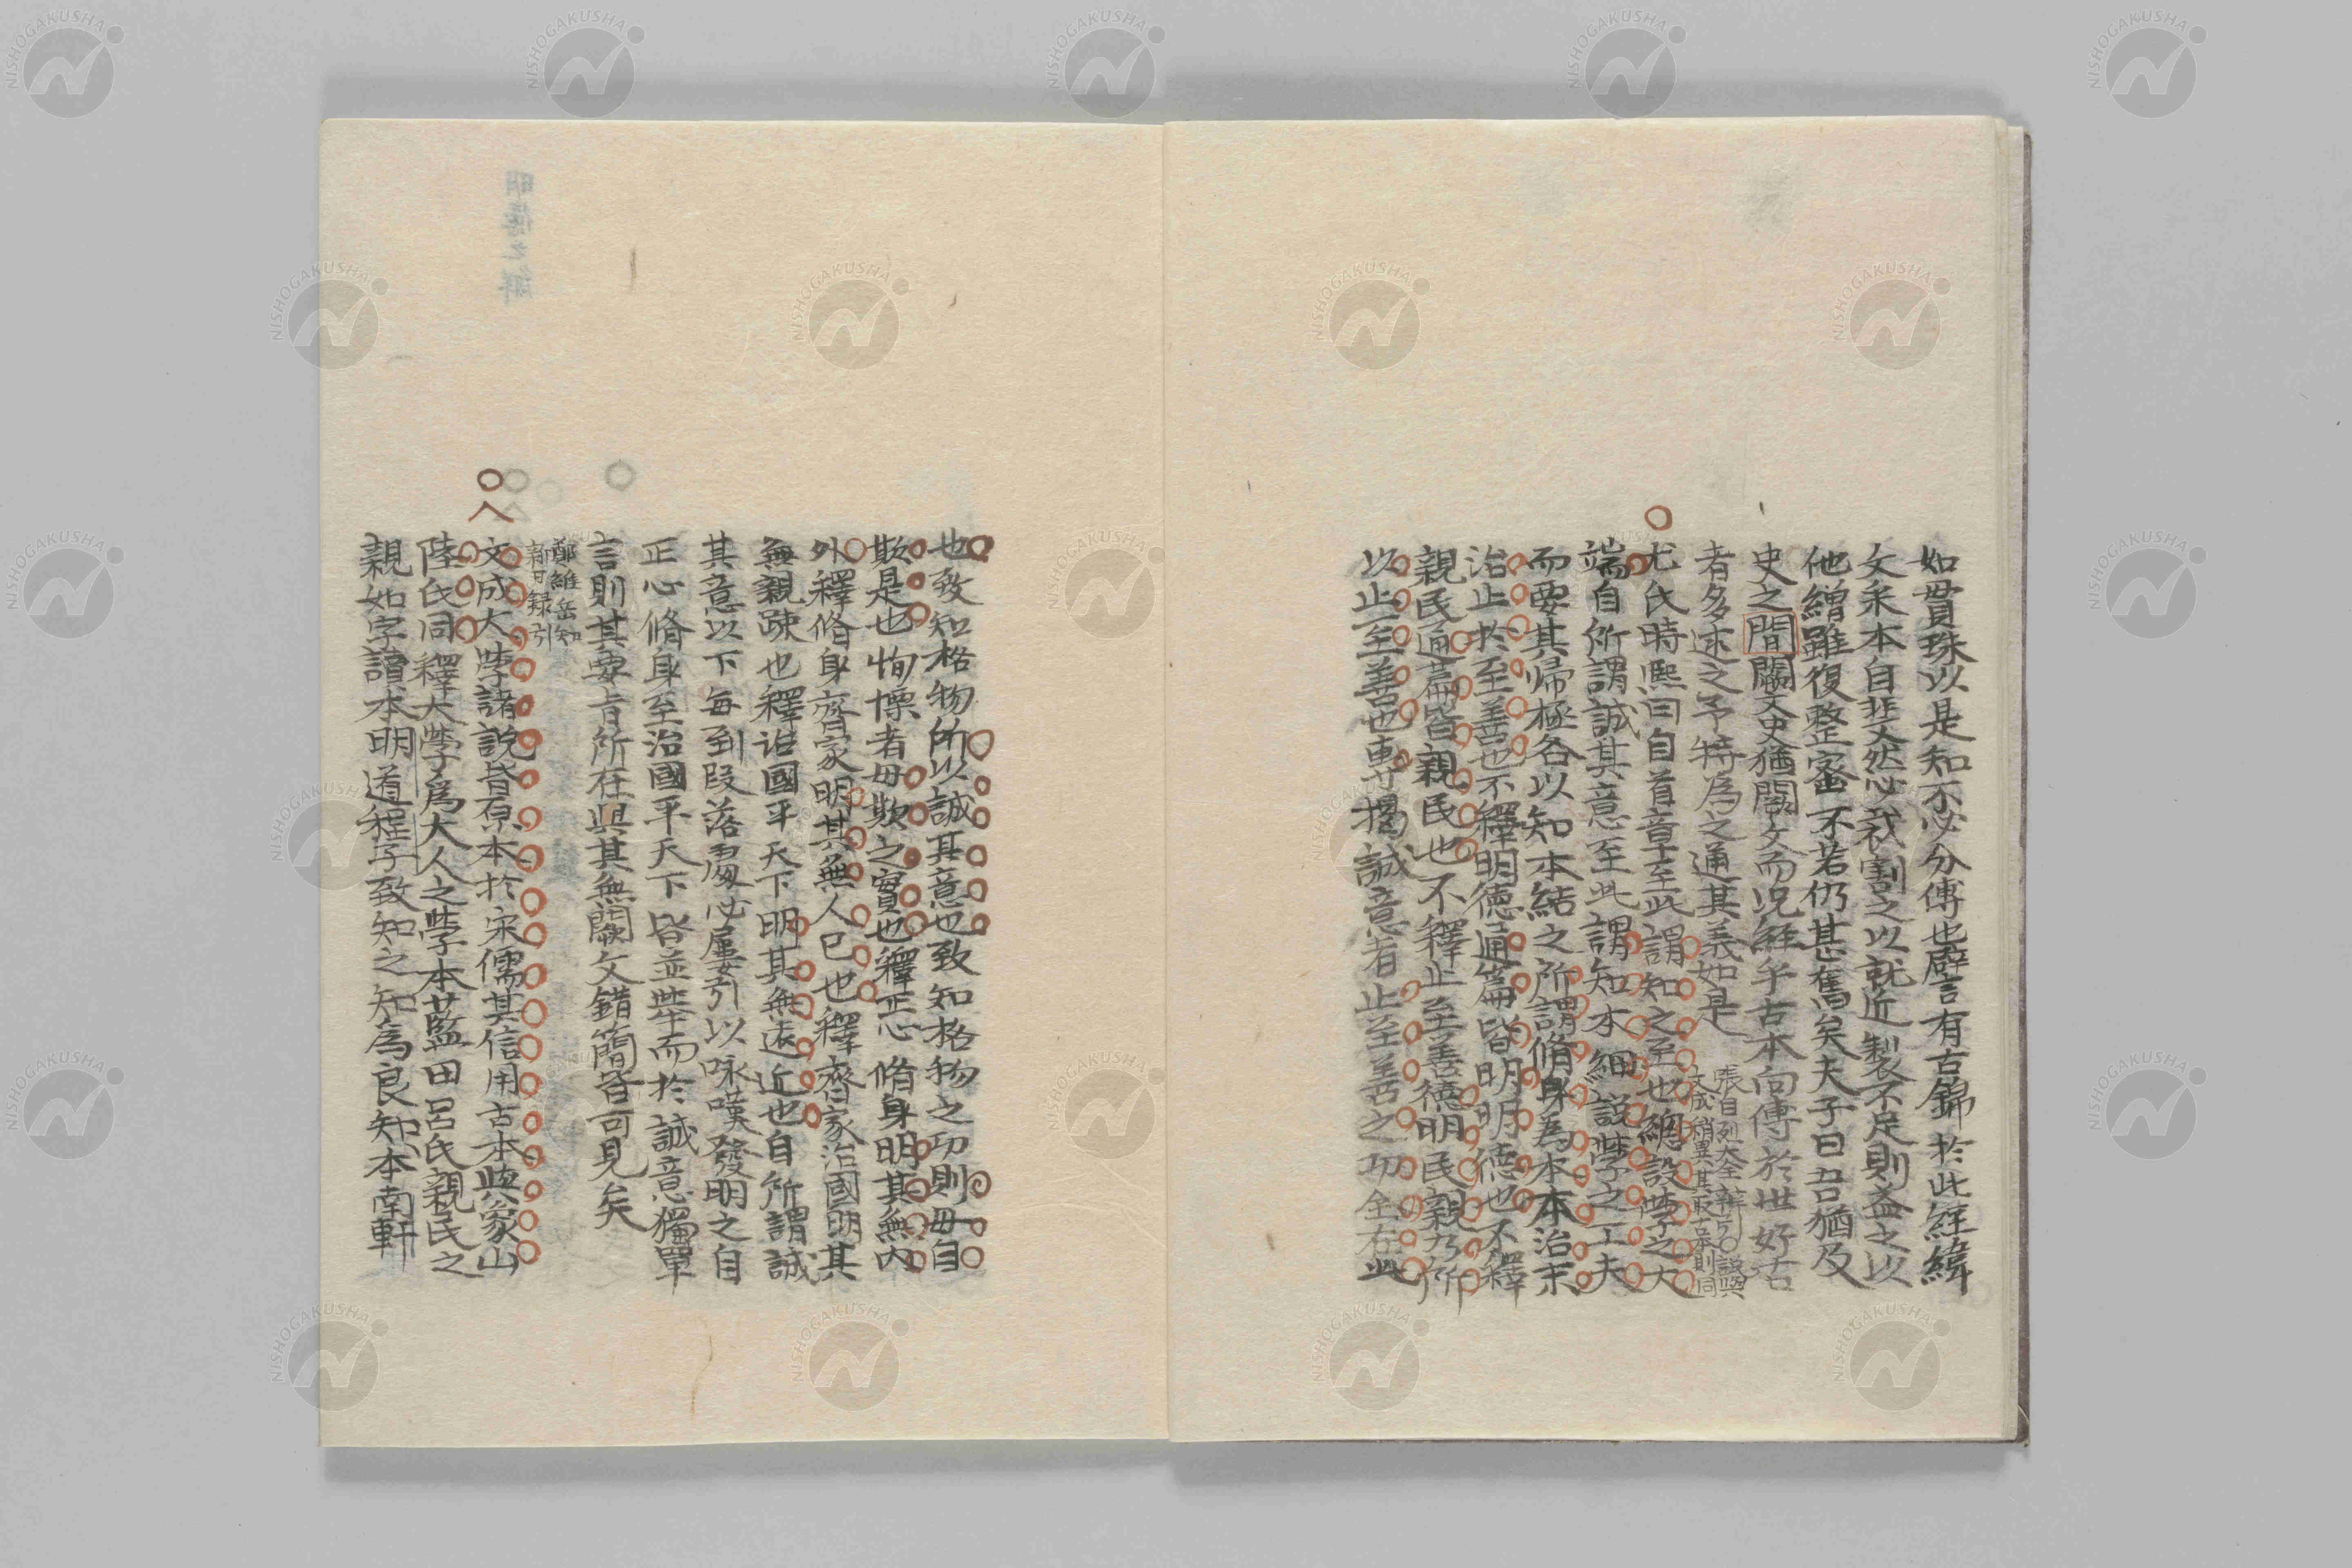 如貫珠以是知不必分傳也譬言有古錦於此經緯
文采本自斐然必裁割之以就近製不足則益之以
他繒雖復整密不若仍其舊矣夫子曰吾猶及
史之間闕文史猶闕文而况經乎古本向傳於世好古
者多述之予特為之通其義如是
張自烈大全辯引〇說與
文成稍異其取古本則同
尤氏時熈曰自首章至此謂知之至也緫設學之大
端自所謂誠其意至此謂知本細說學之工夫
而要其帰極各以知本結之所謂脩身為本本治末
治止於至善也不釋明德通篇皆明明德也不釋
親民通篇皆親民也不釋止至善德明民親乃所
以止至善也專揭誠意者止至善之功全在此
也致知格物所以誠其意也致知格物之功則毋自
欺是也恂慄者毋欺之實也釋正心脩身明其無內
外釋脩身齊家明其無人己也釋齊家治國明其
無親疎也釋治國平天下明其無遠近也自所謂誠
其意以下每到段落處必屢引以咏嘆發明之自
正心脩身至治國平天下皆並舉而於誠意獨單
言則其要旨所在與其無闕文錯簡皆可見矣
鄭維岳知
新日録引
文成大學諸說皆原本於宋儒其信用古本與象山
陸氏同釋大學為大人之學本藍田呂氏親民之
親如字讀本明道程子致知之知為良知本南軒